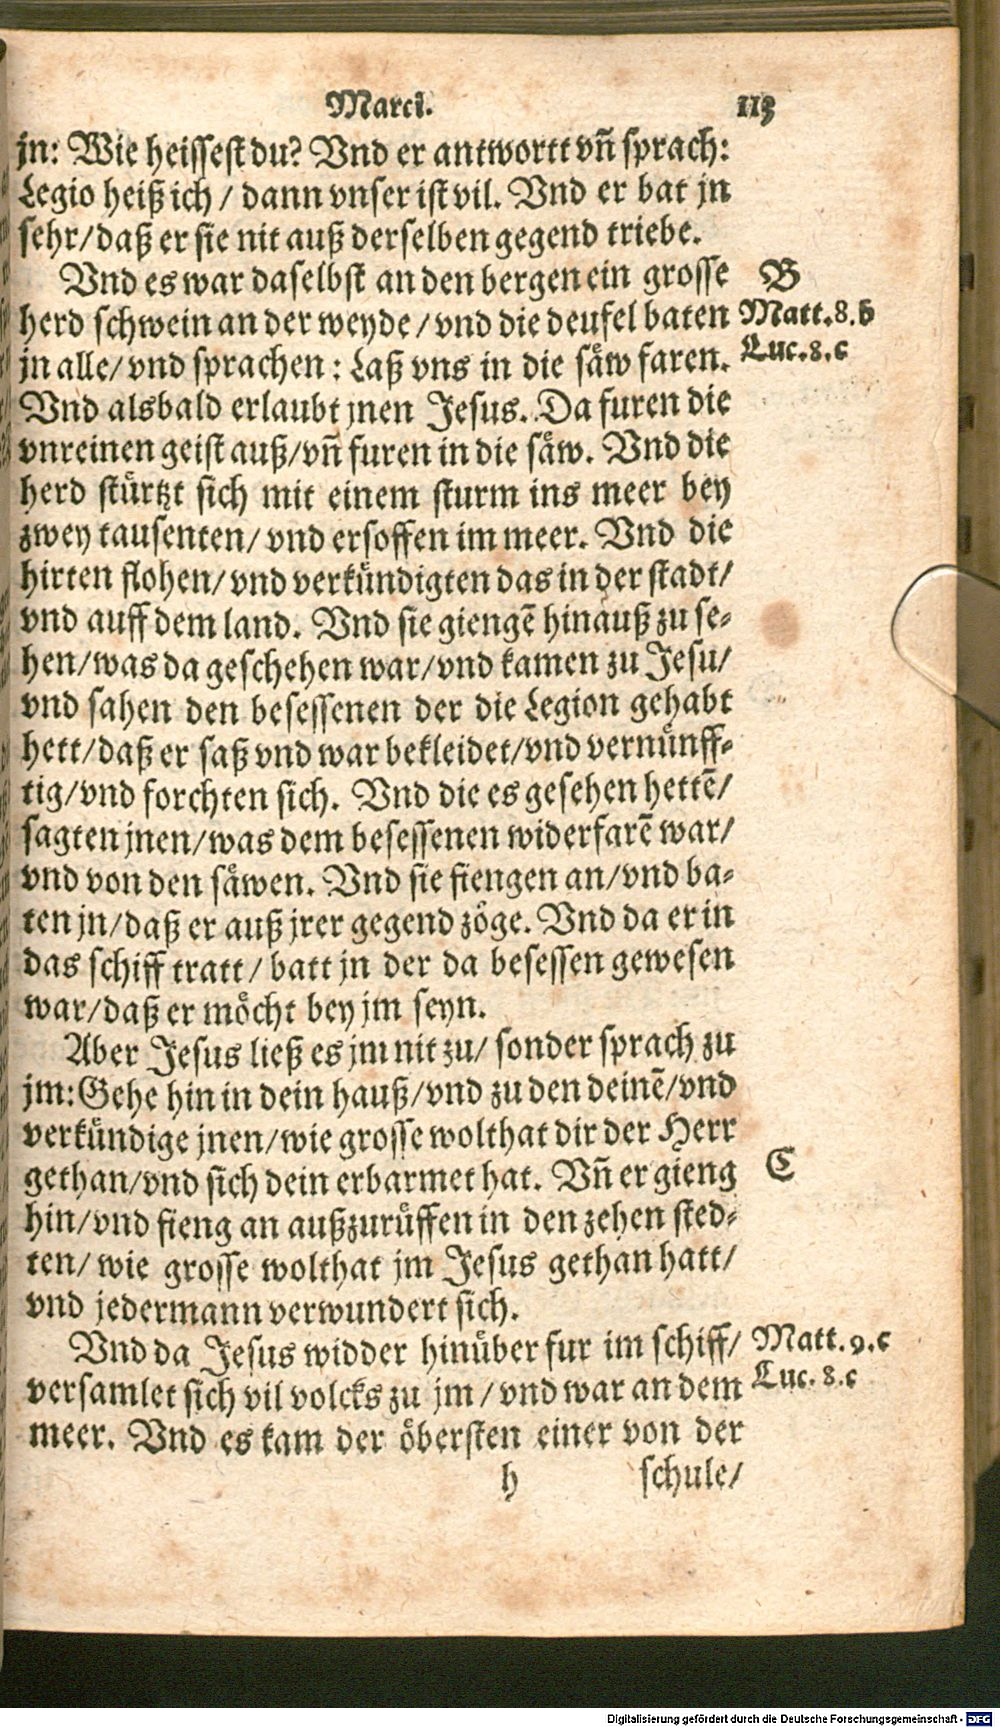 Marci. 113
jn: Wie heissest du? Vnd er antwortt vñ sprach:
Legio heiß ich / dann vnser ist vil. Vnd er bat jn
sehr/daß er sie nit auß derselben gegend triebe.
Vnd es war daselbst an den bergen ein grosse
B
herd schwein an der weyde / vnd die deufel baten
Matt.8.b
jn alle/ vnd sprachen: Laß vns in die säw faren.
Luc.8.c
Vnd alsbald erlaubt jnen Jesus. Da furen die
vnreinen geist auß/vñ furen in die säw. Vnd die
herd stürtzt sich mit einem sturm ins meer bey
zwey tausenten/ vnd ersoffen im meer. Vnd die
hirten flohen/ vnd verkündigten das in der stadt/
vnd auff dem land. Vnd sie giengẽ hinauß zu se-
hen/was da geschehen war/vnd kamen zu Jesu/
vnd sahen den besessenen der die Legion gehabt
hett/daß er saß vnd war bekleidet/vnd vernünff-
tig/vnd forchten sich. Vnd die es gesehen hettẽ/
sagten jnen/was dem besessenen widerfarẽ war/
vnd von den säwen. Vnd sie fiengen an/vnd ba-
ten jn/daß er auß jrer gegend zöge. Vnd da er in
das schiff tratt/ batt jn der da besessen gewesen
war/daß er möcht bey jm seyn.
Aber Jesus ließ es jm nit zu/ sonder sprach zu
jm: Gehe hin in dein hauß/vnd zu den deinẽ/vnd
verkündige jnen/wie grosse wolthat dir der Herr
gethan/vnd sich dein erbarmet hat. Vñ er gieng
C
hin/vnd fieng an außzurüffen in den zehen sted-
ten/ wie grosse wolthat jm Jesus gethan hatt/
vnd jedermann verwundert sich.
Vnd da Jesus widder hinüber fur im schiff/
Matt.9.c
versamlet sich vil volcks zu jm / vnd war an dem
Luc.8.c
meer. Vnd es kam der öbersten einer von der
h schule/
Digitalisierung gefördert durch die Deutsche Forschungsgemeinschaft - DFG